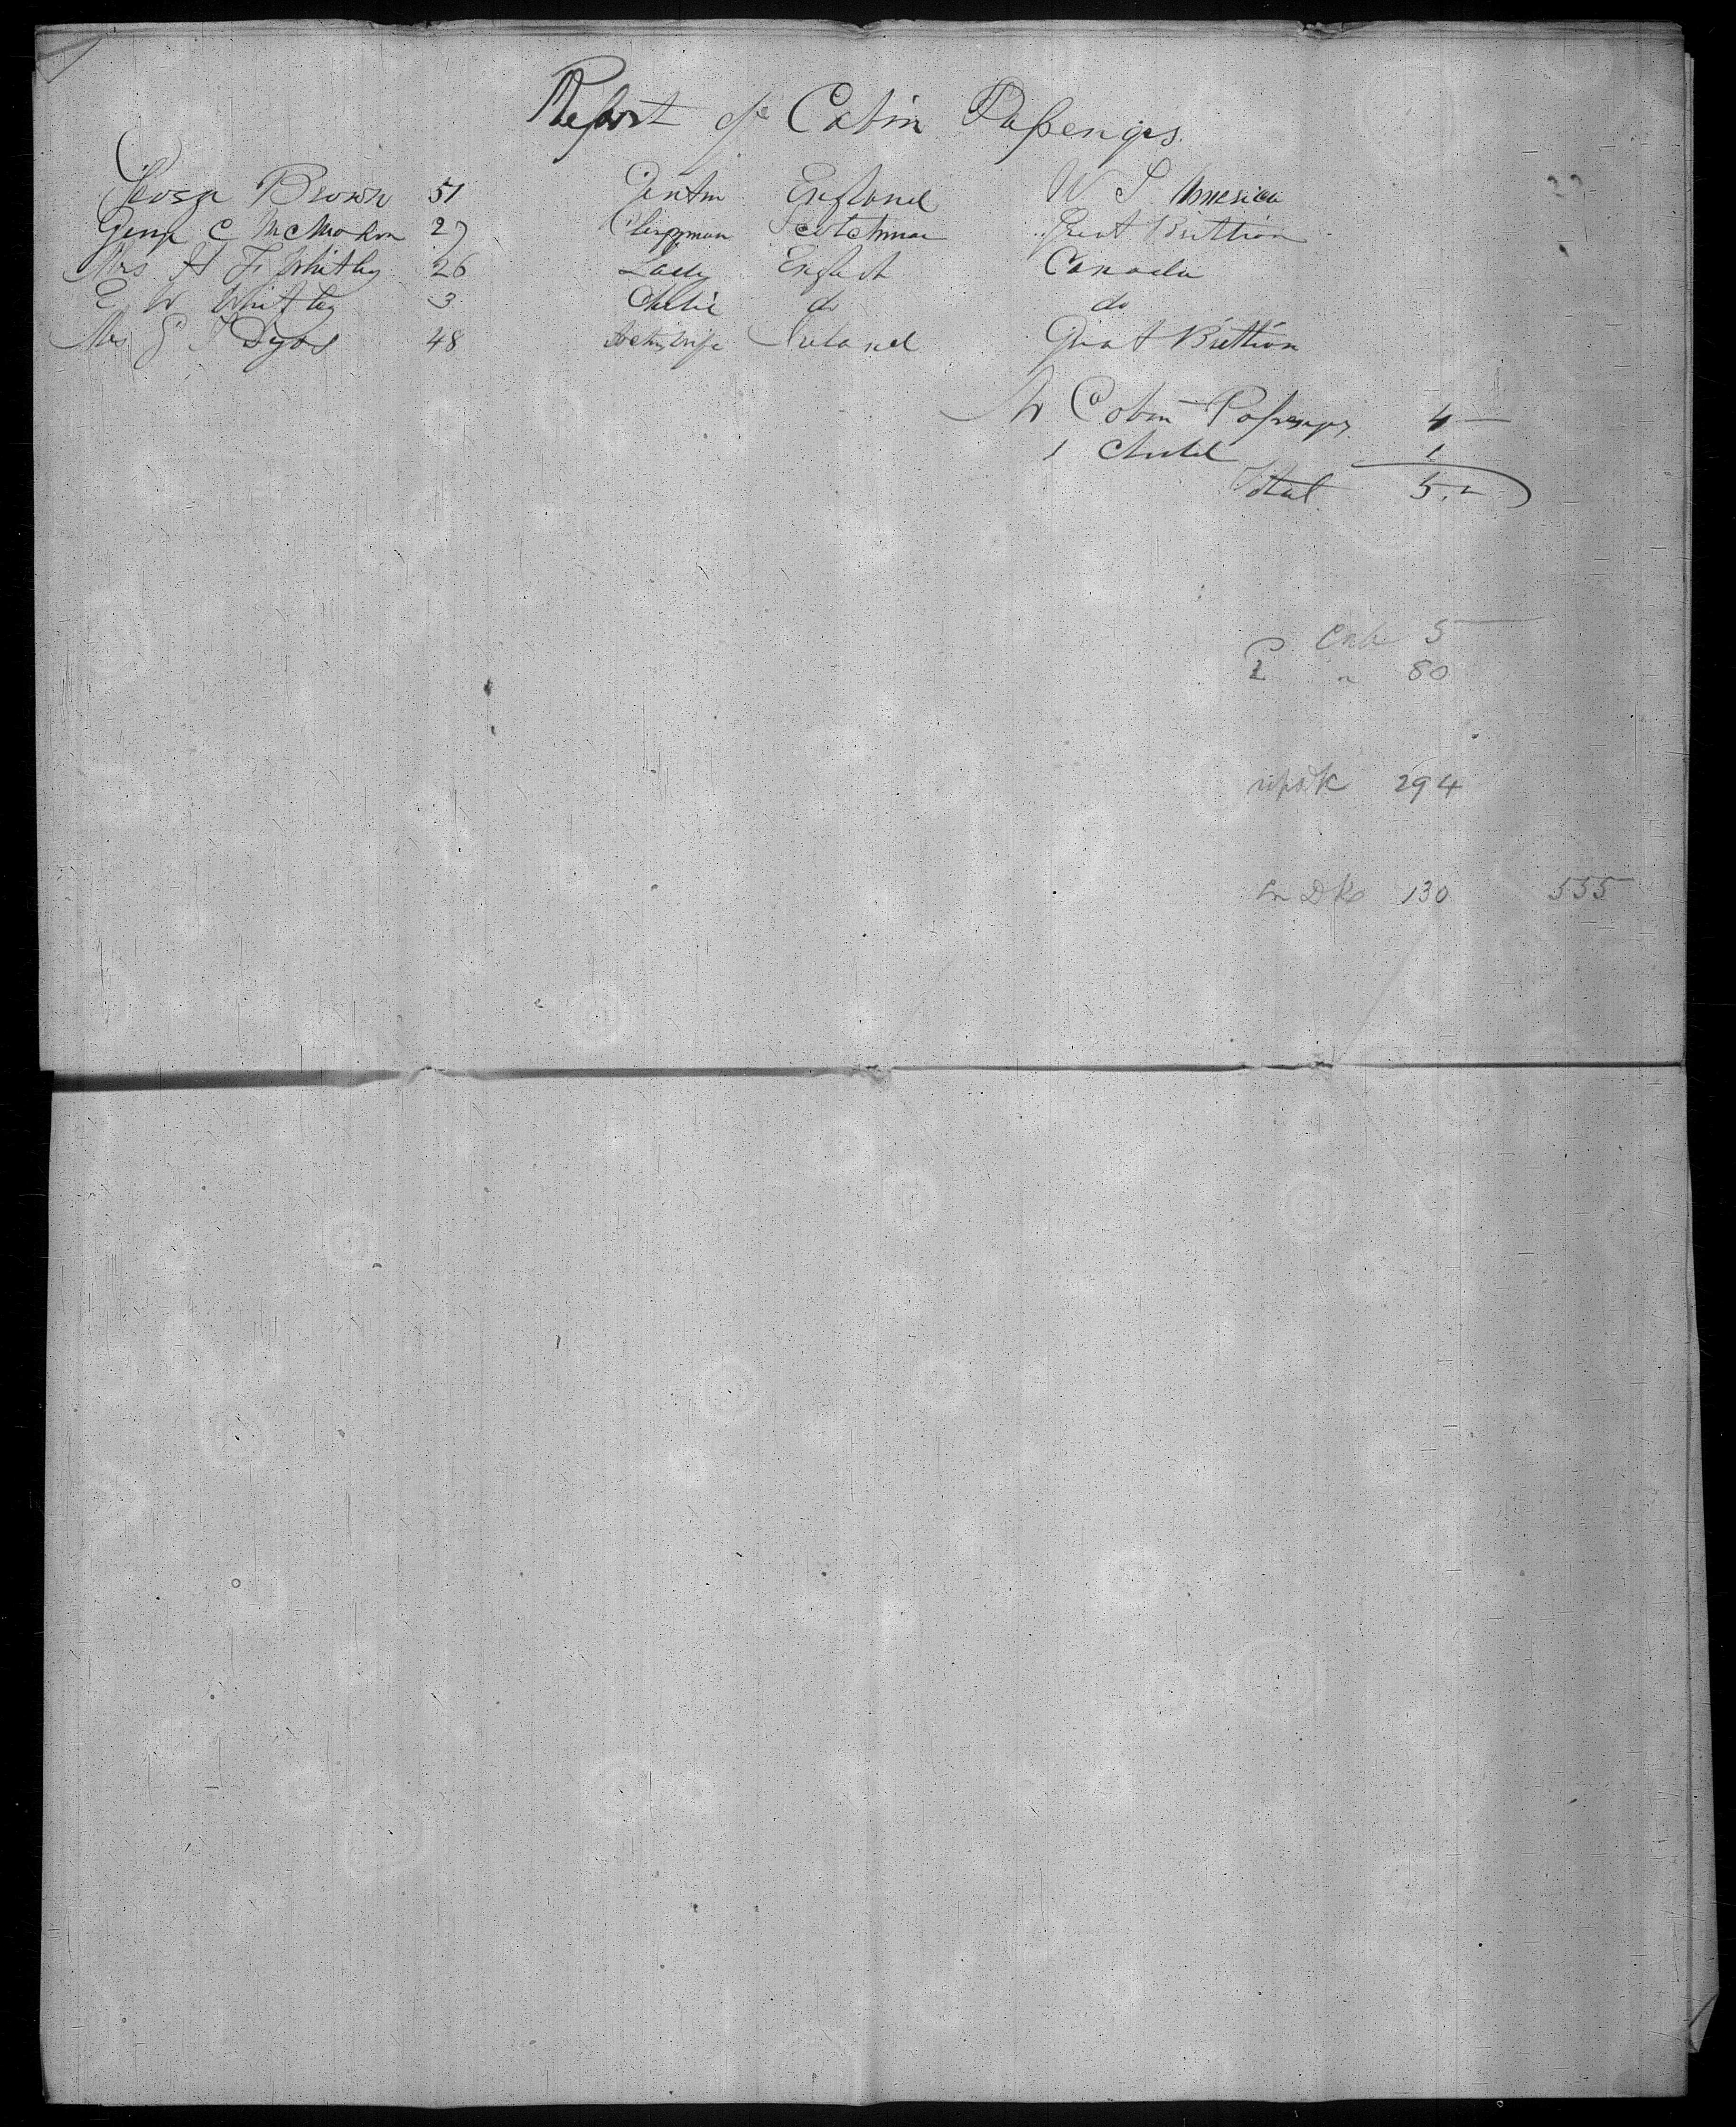 Report of Cabin Passengers.
George Brown 51 Gentm England U S America
George C McMohon 27 Clergyman Scotchman Great Brittion
Mrs H F Whitby 26 Lady English Canada
E W Whitby 3 Child do do
Mrs G T Dyos 48 Ireland Great Brittion
Cabin Passengers 4
1 Child 1
Total 5
Cab 5
2 " 80
upDK 294
DK 130 555